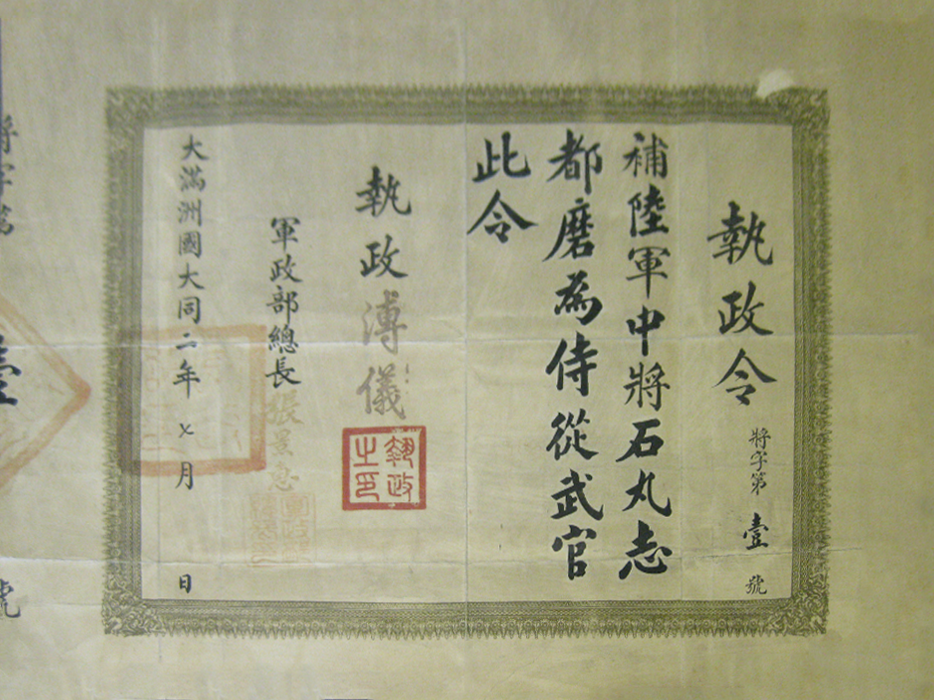 執政令
將字第壹號
補陸軍中將石丸志
都磨為侍從武官
此令
執政溥儀
執政之印
軍政部總長張景惠
大滿洲國大同二年七月 日
將字第
壹
號